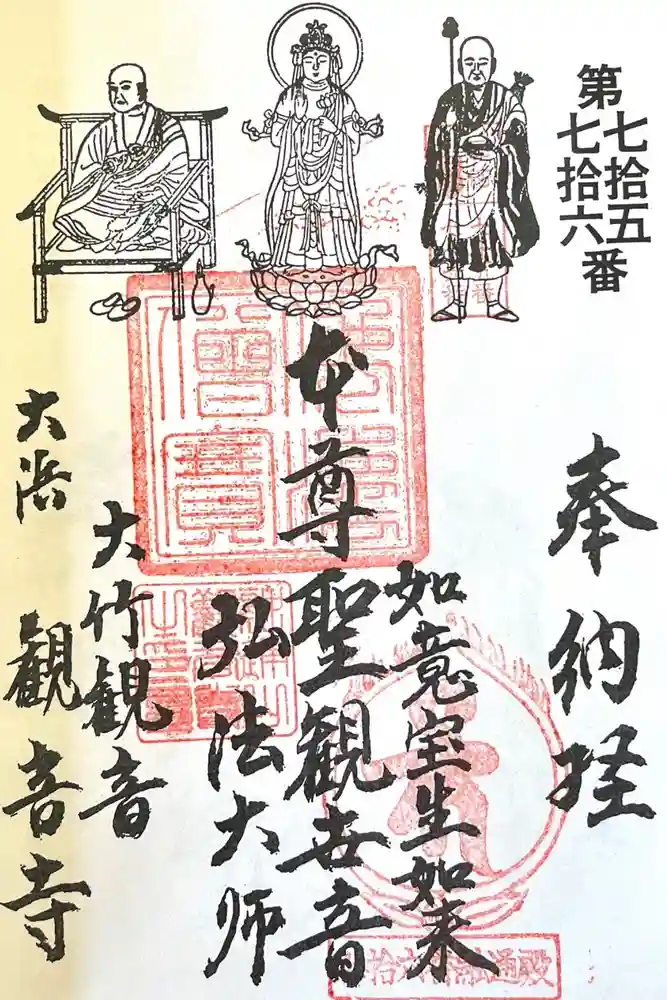 第七拾五
七拾六番
奉納経
如意宝生如来
本尊聖観世音
弘法大师
大竹観音
大浜 観音寺